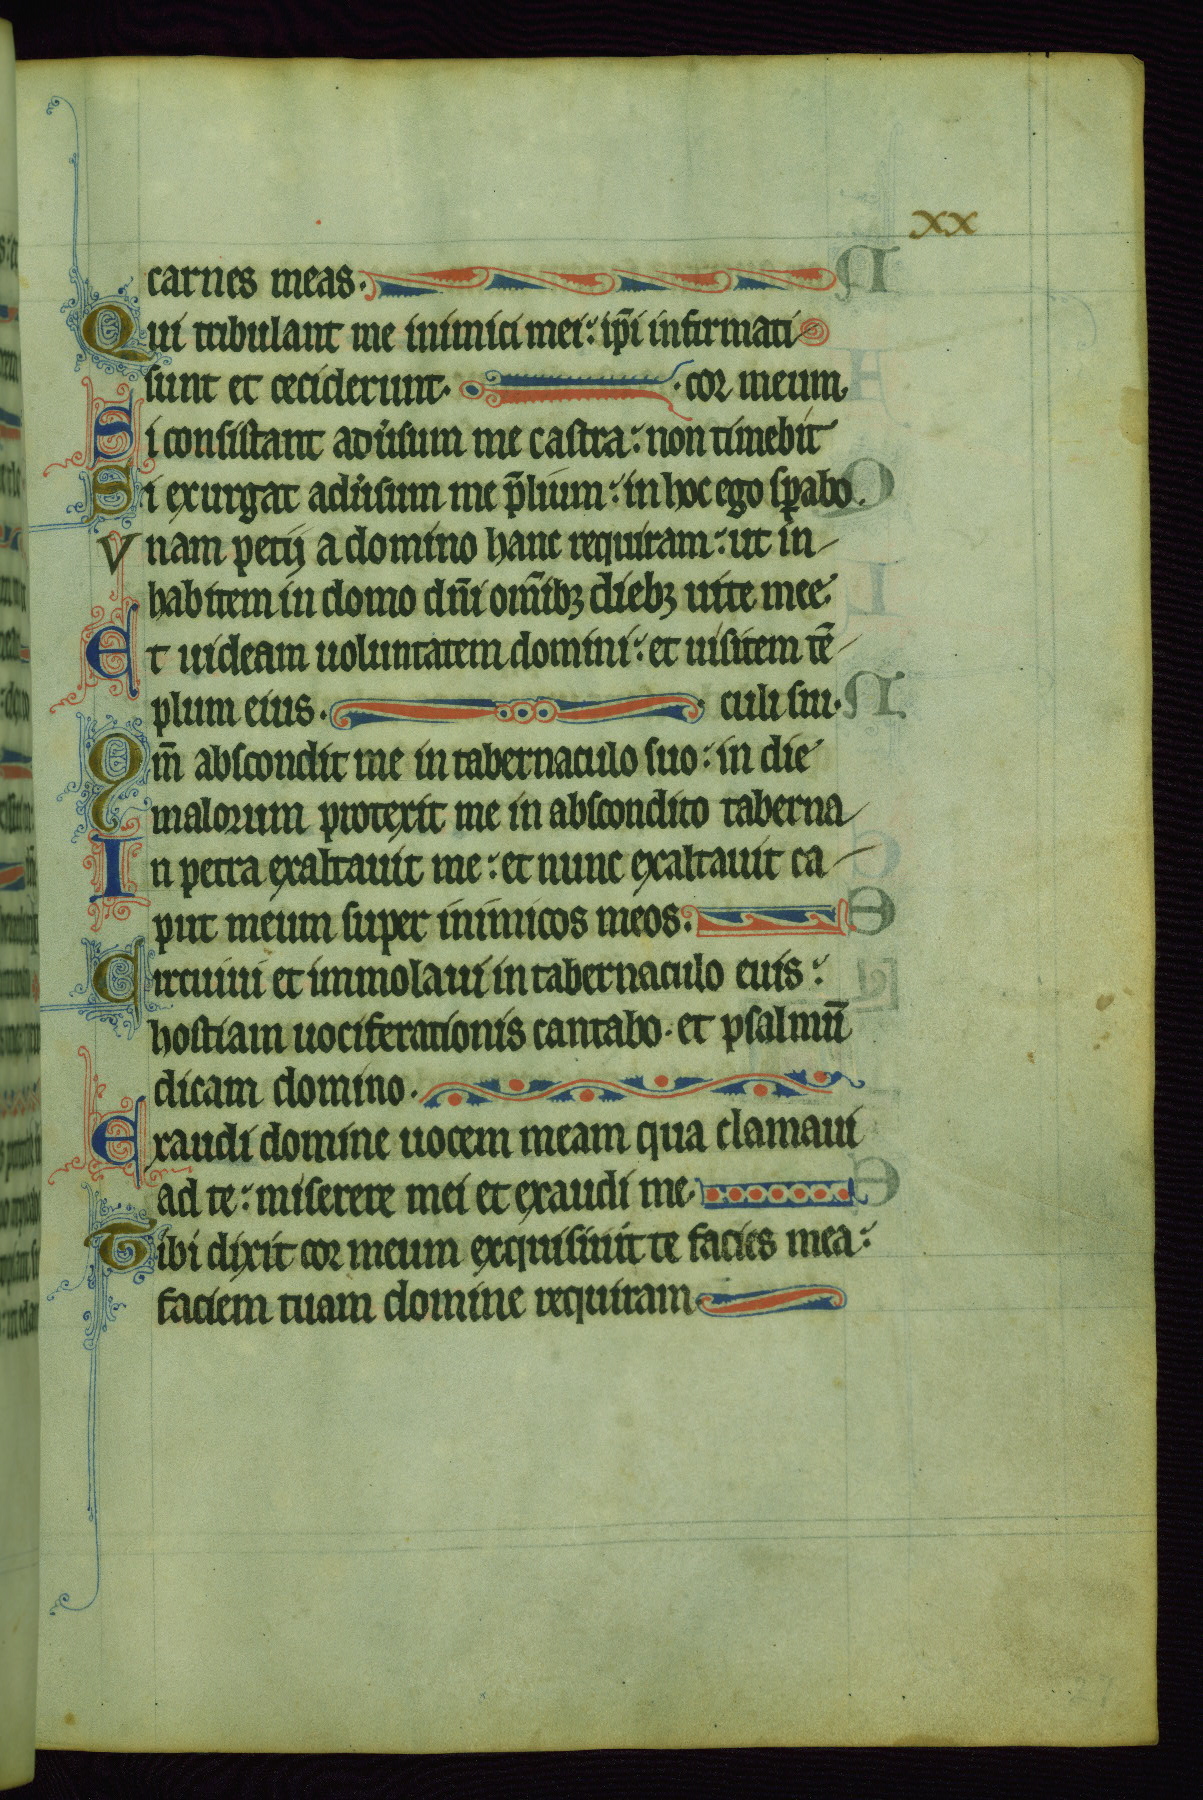 xx
carnes meas.
Qui tribulant me inimici mei: ip̄i infirmati
sunt et ceciderunt. cor meum.
Si consistant adu̾sum me castra: non timebit
Si exurgat adu̾sum me p̄lium: in hoc ego sꝑabo.
Vnam petij a domino hanc requiram: ut in
habitem in domo dn̄i om̄ibꝫ diebꝫ uite mee.
Et uideam uoluntatem domini: et uisitem tē
plum eius. culi sui.
Qm̄ abscondit me in tabernaculo suo: in die
malorum protexit me in abscondito taberna
In petra exaltauit me: et nunc exaltauit ca
put meum super inimicos meos.
Circuiui et immolaui in tabernaculo euis:
hostiam uociferationis cantabo. et psalmū
dicam domino.
Exaudi domine uocem meam qua clamaui
ad te: miserere mei et exaudi me.
Tibi dixit cor meum exquisiuit te facies mea:
faciem tuam domine requiram
27